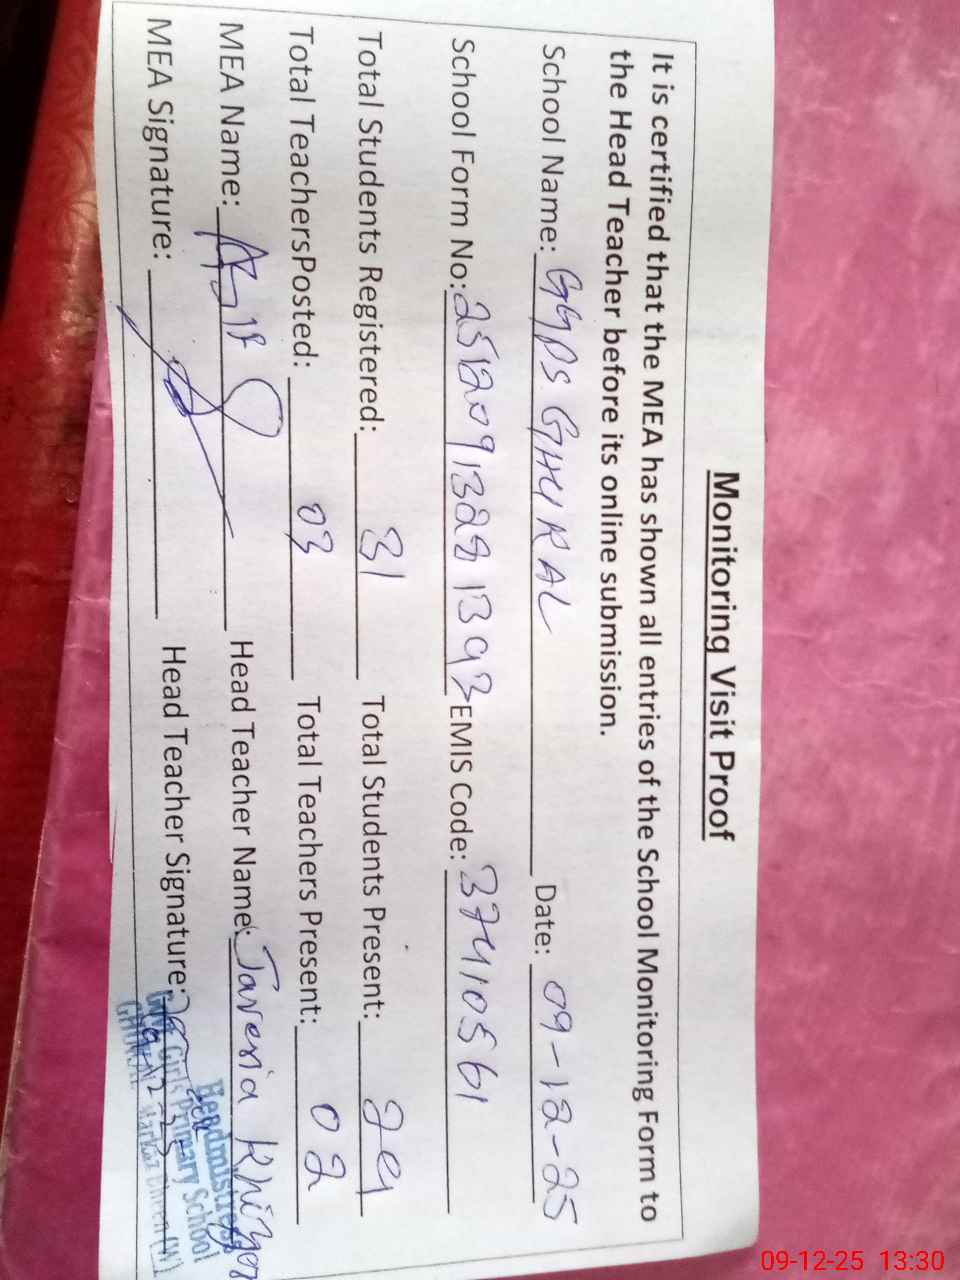 Monitoring Visit Proof
It is certified that the MEA has shown all entries of the School Monitoring Form to
the Head Teacher before its online submission.
School Name: GGPS GHURAL Date: 09-12-25
School Form No: 2512091328 1393 EMIS Code: 37410561
Total Students Registered: 31 Total Students Present: 29
Total TeachersPosted: 03 Total Teachers Present: 02
MEA Name: Head Teacher Name: Javeria
MEA Signature: Head Teacher Signature:
Headmistress
Govt Girls Primary School
GHURAL Markaz (W)
09-12-25 13:30